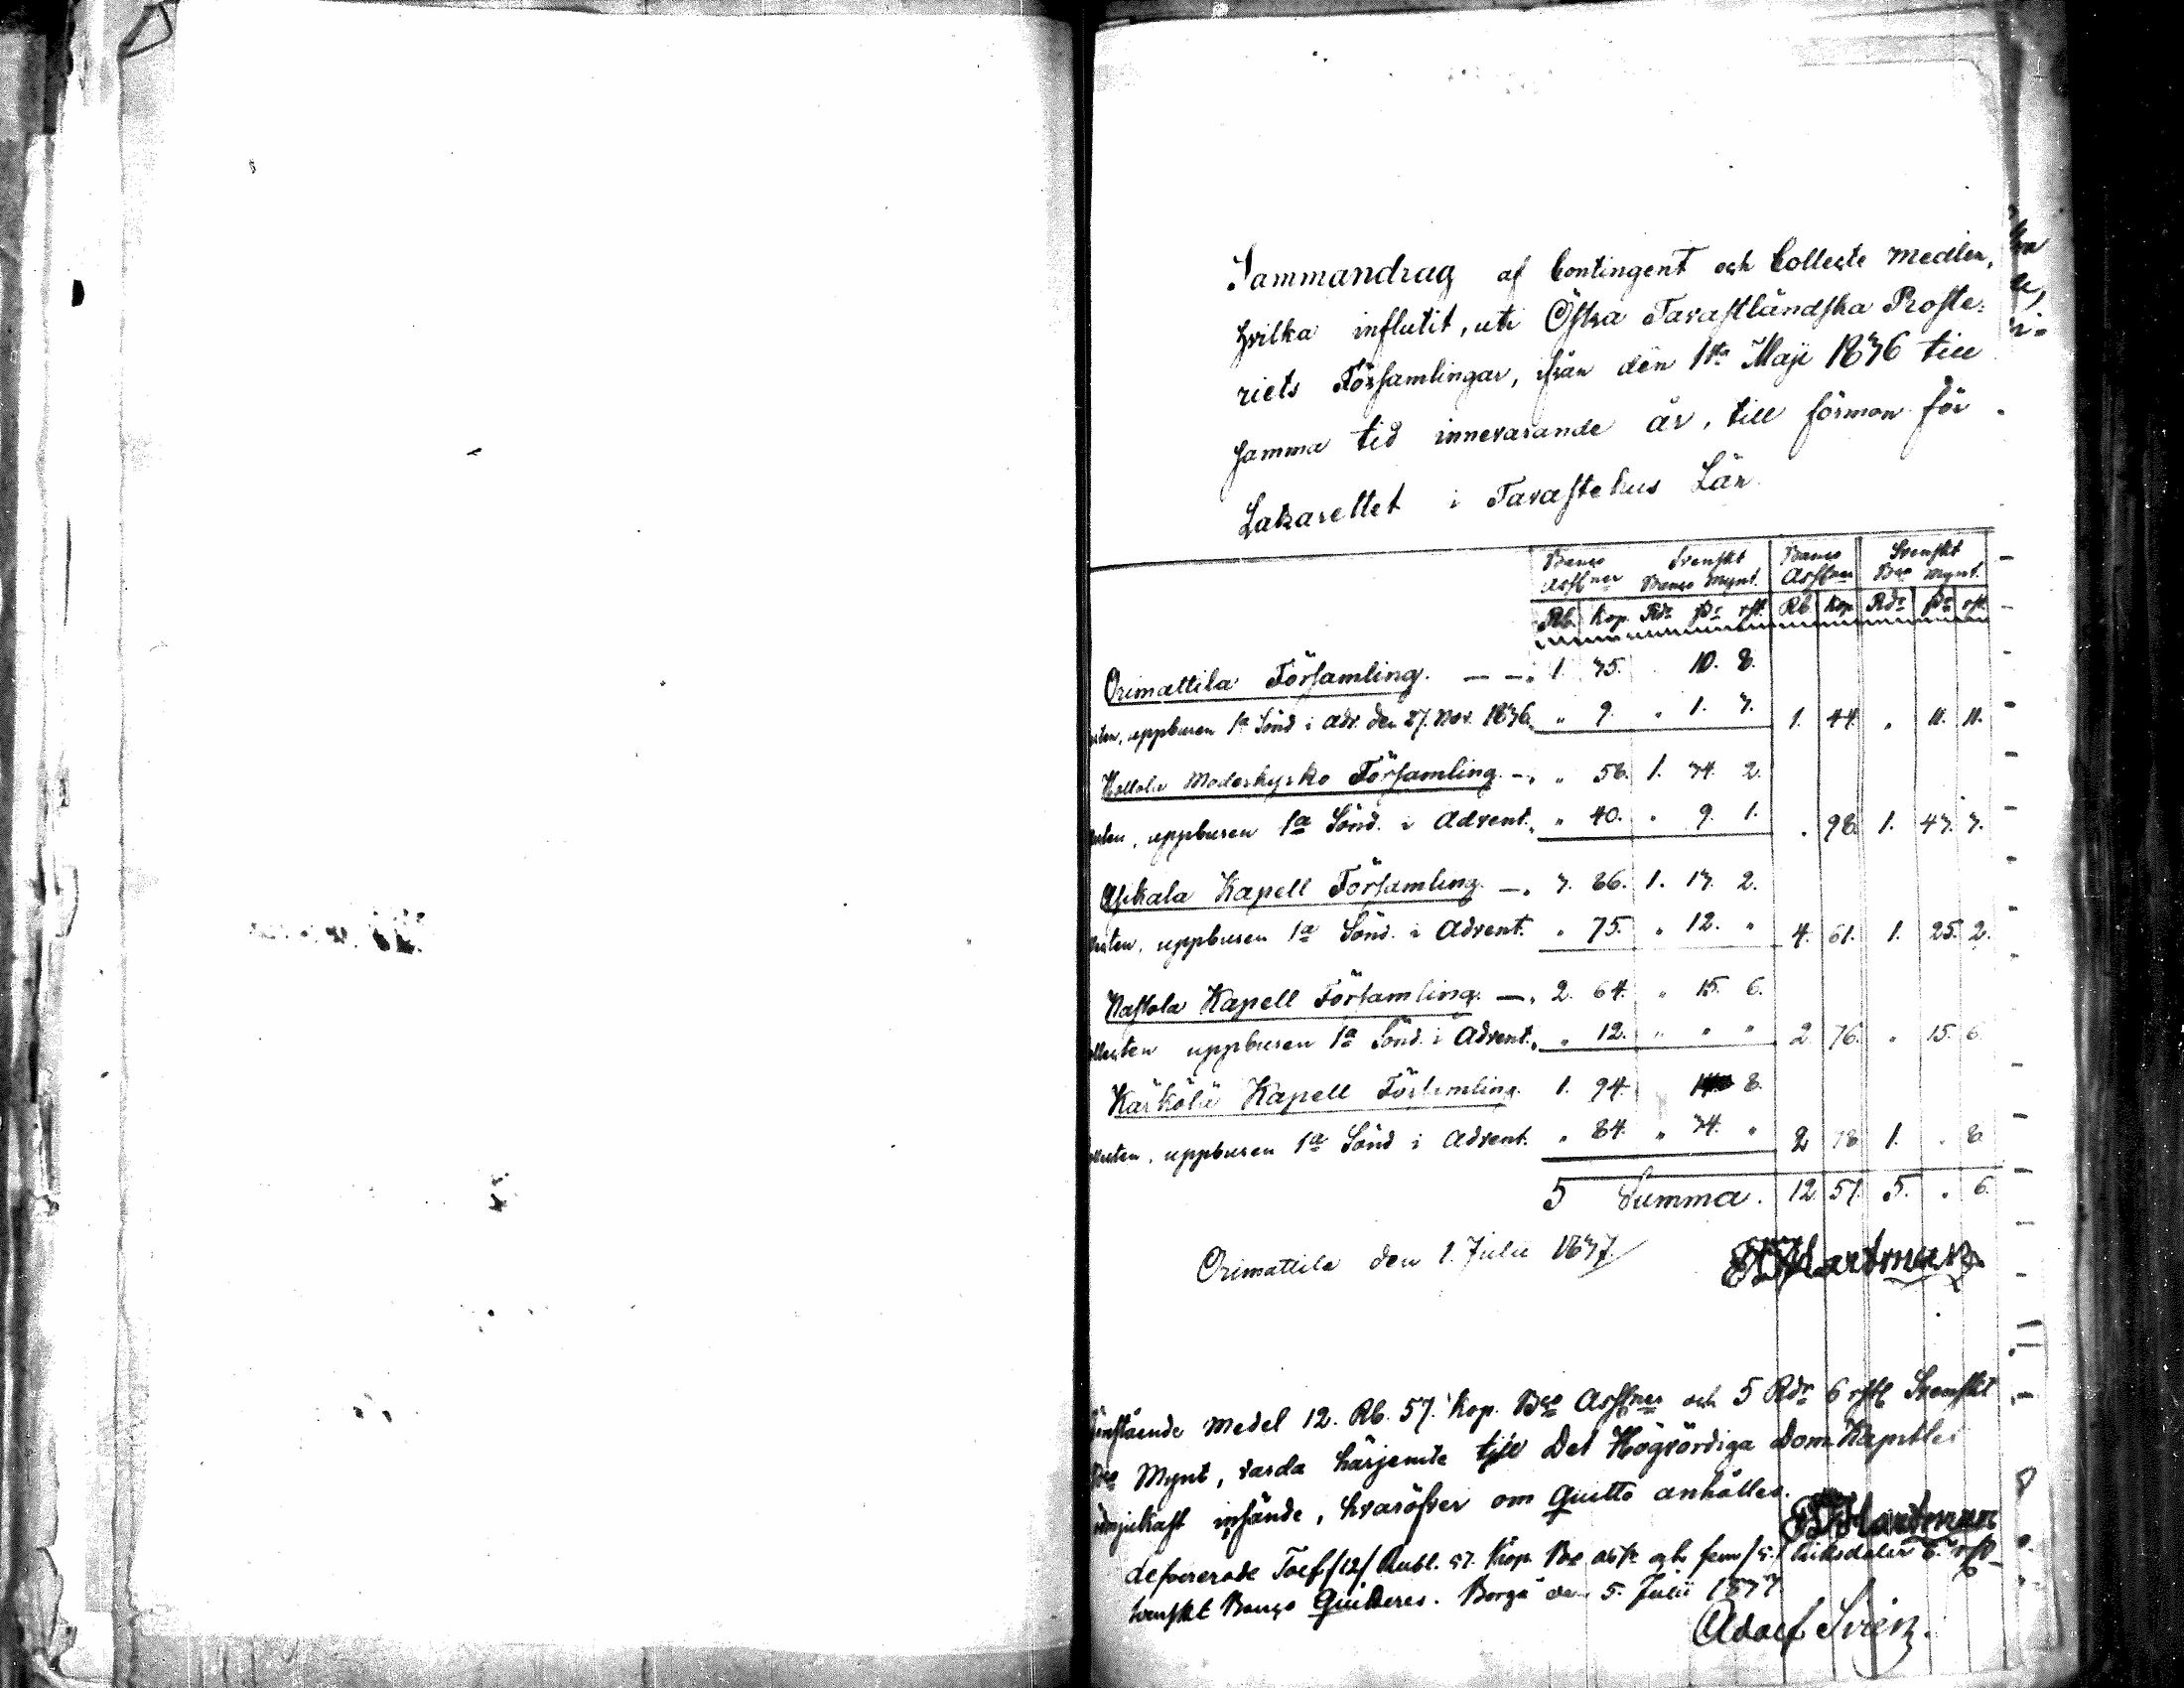 Sammandrag af Contingent och Collecte medlen,
hvilka influtit, uti Östra Tavastländska Proste-
riets Församlingar, ifrån den 1sta Maji 1836 till
samma tid innevarande år, till förmon för
Lazarettet i Tavastehus Län.
Banco Svenskt Banco Svenskt
Assner Banco Mynt. Assner Bco Mynt.
Rb. Kop. Rdr sk rst. Rb. Kop. Rdr sk rst.
Orimattila Församling. 1. 35. 10. 8.
uppburen 1a Sönd. i Adv. den 27. Nov. 1836. " 9. " 1. 3. 1. 44. " 11. 11.
Hollola Moderkyrko Församling. " 58. 1. 34. 2.
uppburen 1a Sönd. i Advent. " 40. " 9. 1. . 98. 1. 43. 3.
Asikala Kapell Församling. 3. 86. 1. 13. 2.
uppburen 1a Sönd. i Advent. " 75. " 12. " 4. 61. 1. 25. 2.
Nastola Kapell Församling. 2. 64. " 15. 6.
uppburen 1a Sönd. i Advent. " 12. " " " 2. 76. " 15. 6.
Kärkölä Kapell Församling. 1. 94. 14 8.
uppburen 1a Sönd. i Advent. " 84. " 34. " 2. 78. 1. . 8.
5 Summa. 12. 57. 5. . 6.
Orimattila den 1. Julii 1837.
Hartman
Medel 12. Rb. 57. Kop. Bco Assner och 5 Rdr 6 rst Svenskt
Bco Mynt, varda härjemte till Det Högvördiga Dom Kapitlet
insände, hvaröfver om Quitto anhålles.
Hartman
Tolf /12/ Rubl. 57. Kop. Bco och fem /5/ Riksdaler 6. rst
Svenskt Banco Quitteres. Borgå den 5. Julii 1837
Adolf